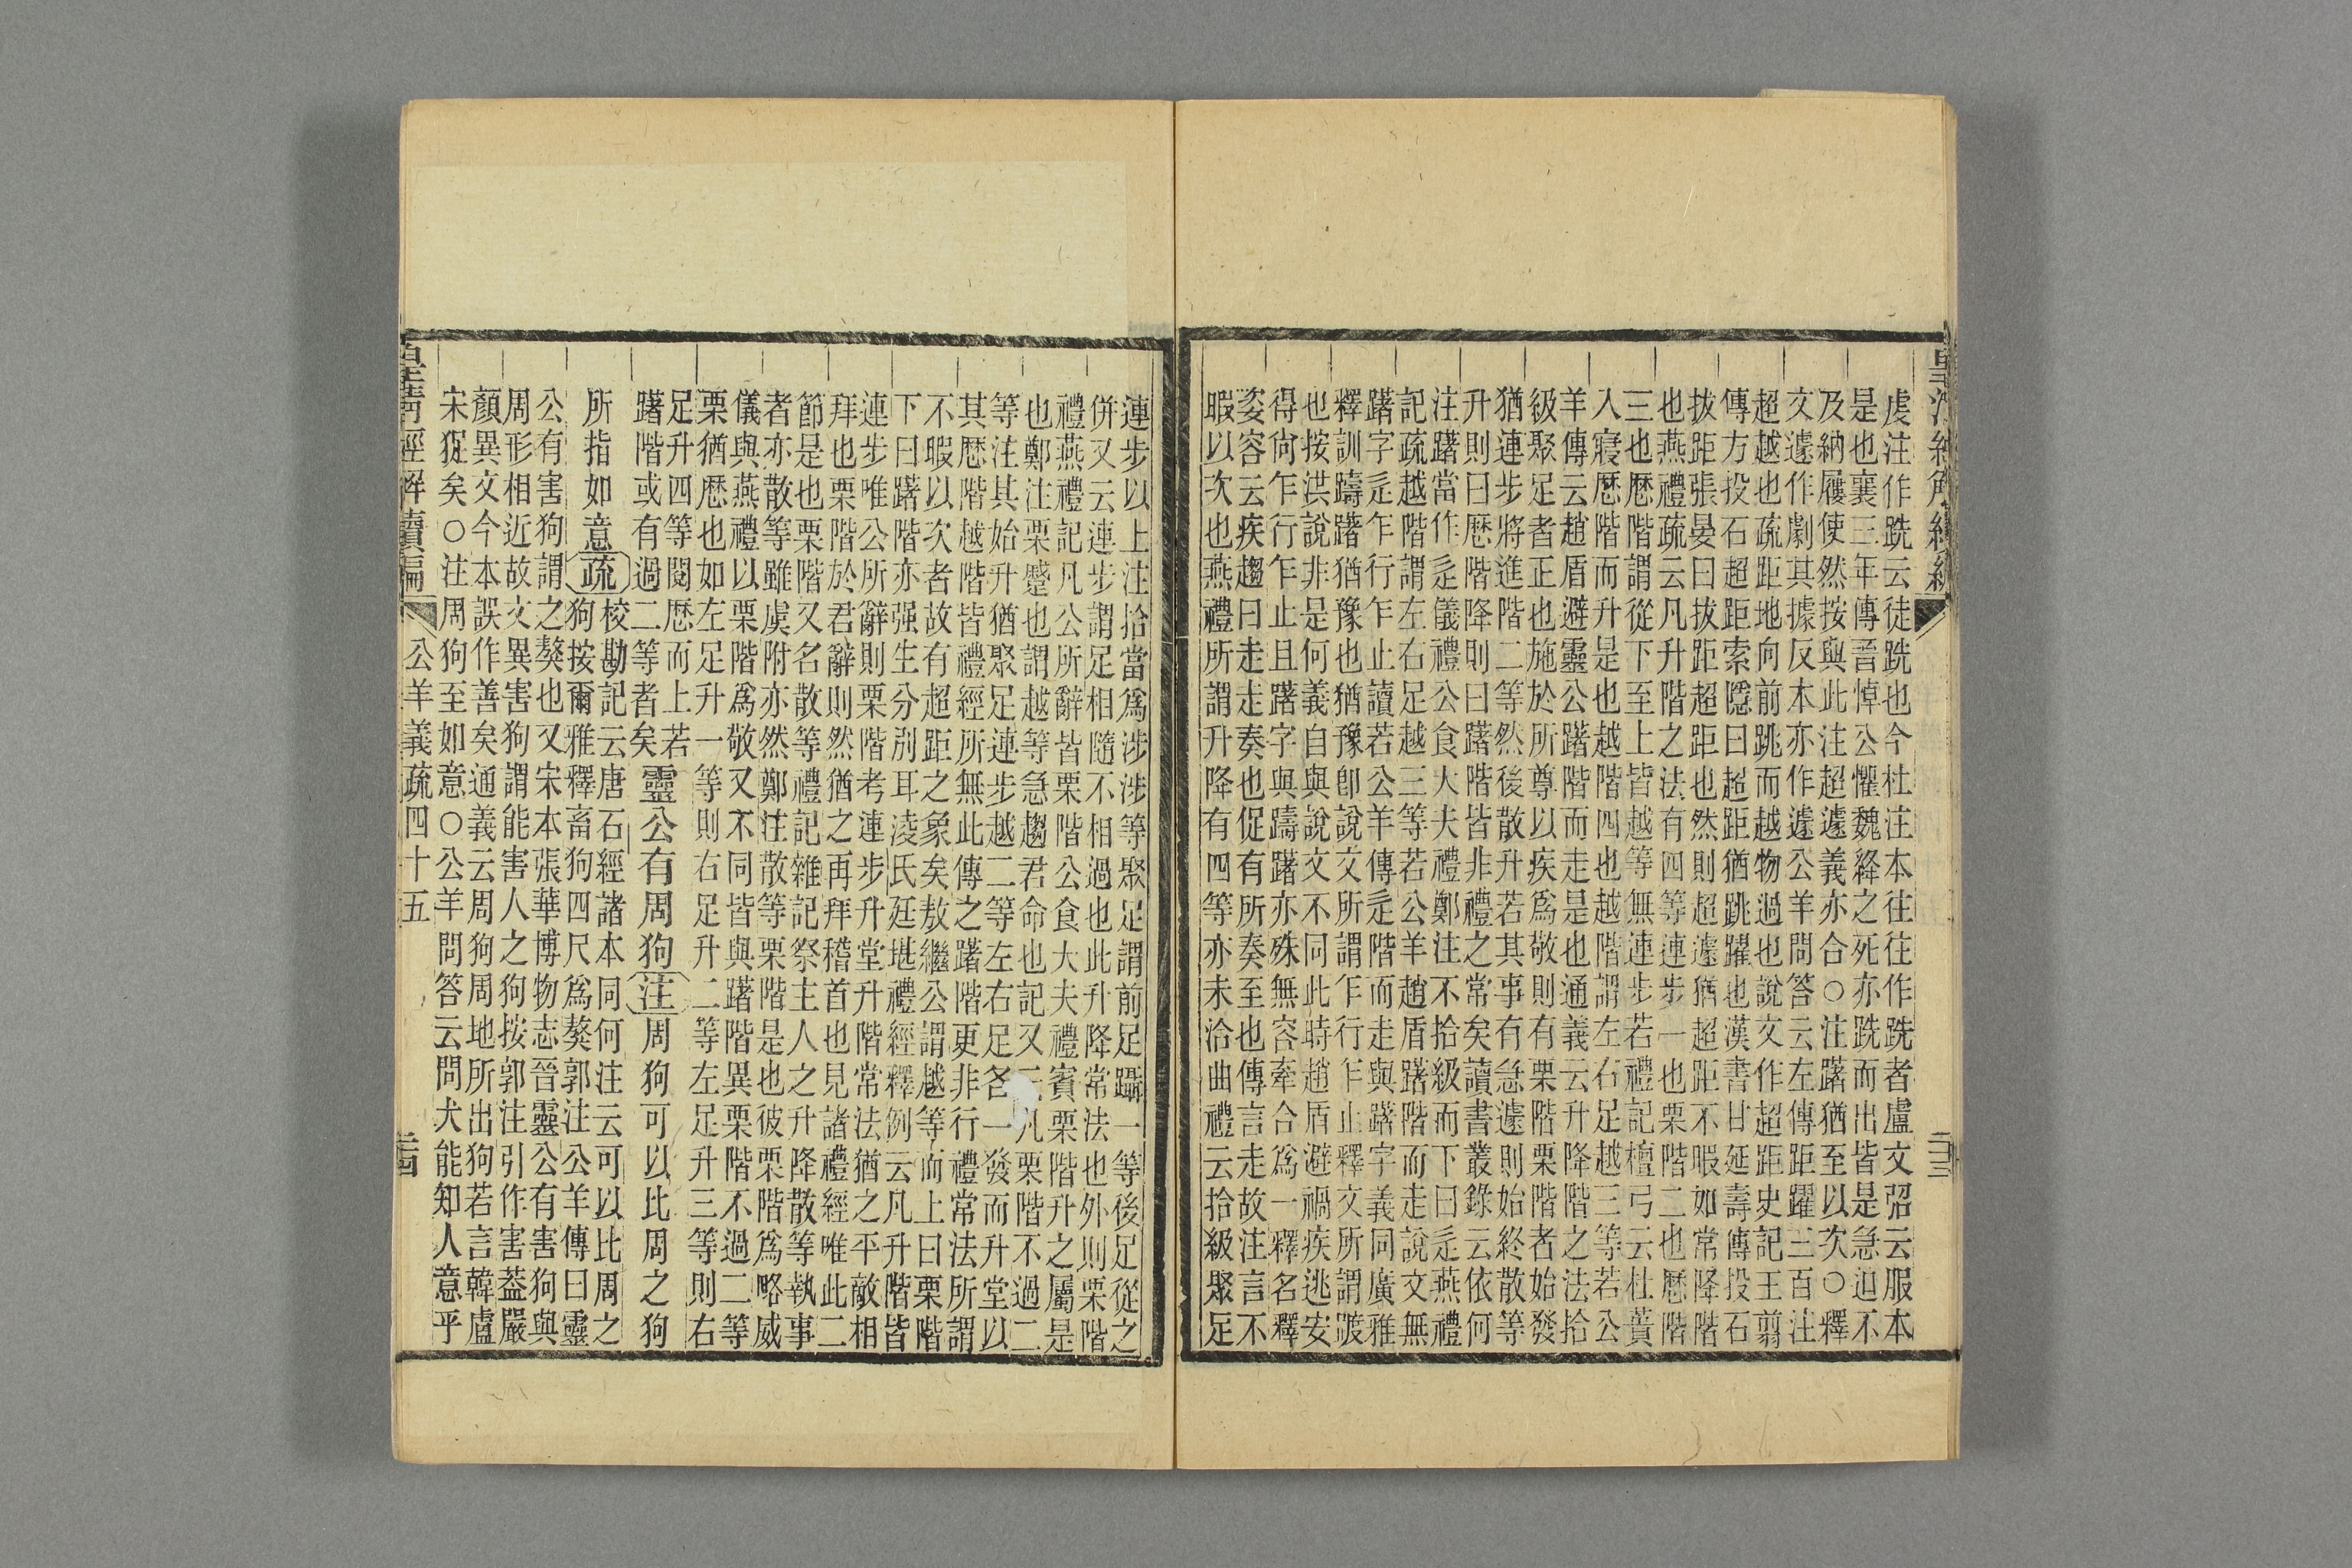 虔注作跣云徒跣也今杜注本往往作跣者盧文弨云服本
是也襄三年傳晉悼公懼魏絳之死亦跣而出皆是急迫不
及納履使然按與此注超遽義亦合○注躇猶至以次○釋
文遽作劇其據反本亦作遽公羊問答云左傳距躍三百注
超越也疏距地向前跳而越物過也說文作超距史記王翦
傳方投石超距索隱曰超距猶跳躍也漢書甘延壽傳投石
拔距張晏曰拔距超距也然則超遽猶超距不暇如常降階
也燕禮疏云凡升階之法有四等連步一也栗階二也歷階
三也歷階謂從下至上皆越等無連步若禮記檀弓云杜蕢
入寢歷階而升是也越階四也越階謂左右足越三等若公
羊傳云趙盾避靈公躇階而走是也通義云升降階之法拾
級聚足者正也施於所尊以疾爲敬則有栗階栗階者始發
猶連步將進階二等然後散升若其事有急遽則始終散等
升則曰歷階降則曰躇階皆非禮之常矣讀書叢錄云依何
注躇當作辵儀禮公食大夫禮鄭注不拾級而下曰辵燕禮
記疏越階謂左右足越三等若公羊趙盾躇階而走說文無
躇字辵乍行乍止讀若公羊傳辵階而走與躇字義同廣雅
釋訓躊躇猶豫也猶豫卽說文所謂乍行乍止釋文所謂踱
也按洪說非是何義自與說文不同此時趙盾避禍疾逃安
得尙乍行乍止且躇字與躊躇亦殊無容牽合爲一釋名釋
姿容云疾趨曰走走奏也促有所奏至也傳言走故注言不
暇以次也燕禮所謂升降有四等亦未洽曲禮云拾級聚足
連步以上注拾當爲涉涉等聚足謂前足躡一等後足從之
併又云連步謂足相隨不相過也此升降常法也外則栗階
禮燕禮記凡公所辭皆栗階公食大夫禮賓栗階升之屬是
也鄭注栗蹙也謂越等急趨君命也記又云凡栗階不過二
等注其始升猶聚足連步越二等左右足各一發而升堂以
其歷階越階皆禮經所無此傳之躇階更非行禮常法所謂
不暇以次者故有超距之象矣敖繼公謂越等而上曰栗階
下曰躇階亦强生分別耳淩氏廷堪禮經釋例云凡升階皆
連步唯公所辭則栗階考連步升堂升階常法猶之平敵相
拜也栗階於君辭則然猶之再拜稽首也見諸禮經唯此二
節是也栗階又名散等禮記雜記祭主人之升降散等執事
者亦散等雖虞附亦然鄭注散等栗階是也彼栗階爲略威
儀與燕禮以栗階爲敬又不同皆與躇階異栗階不過二等
栗猶歷也如左足升一等則右足升二等左足升三等則右
足升四等閱歷而上若
躇階或有過二等者矣靈公有周狗注周狗可以比周之狗
所指如意疏校勘記云唐石經諸本同何注云可以比周之
狗按爾雅釋畜狗四尺爲獒郭注公羊傳曰靈
公有害狗謂之獒也又宋本張華博物志晉靈公有害狗與
周形相近故文異害狗謂能害人之狗按郭注引作害葢嚴
顏異文今本誤作善矣通義云周狗周地所出狗若言韓盧
宋㹱矣○注周狗至如意○公羊問答云問犬能知人意乎
皇清經解續編 公羊義疏四十五